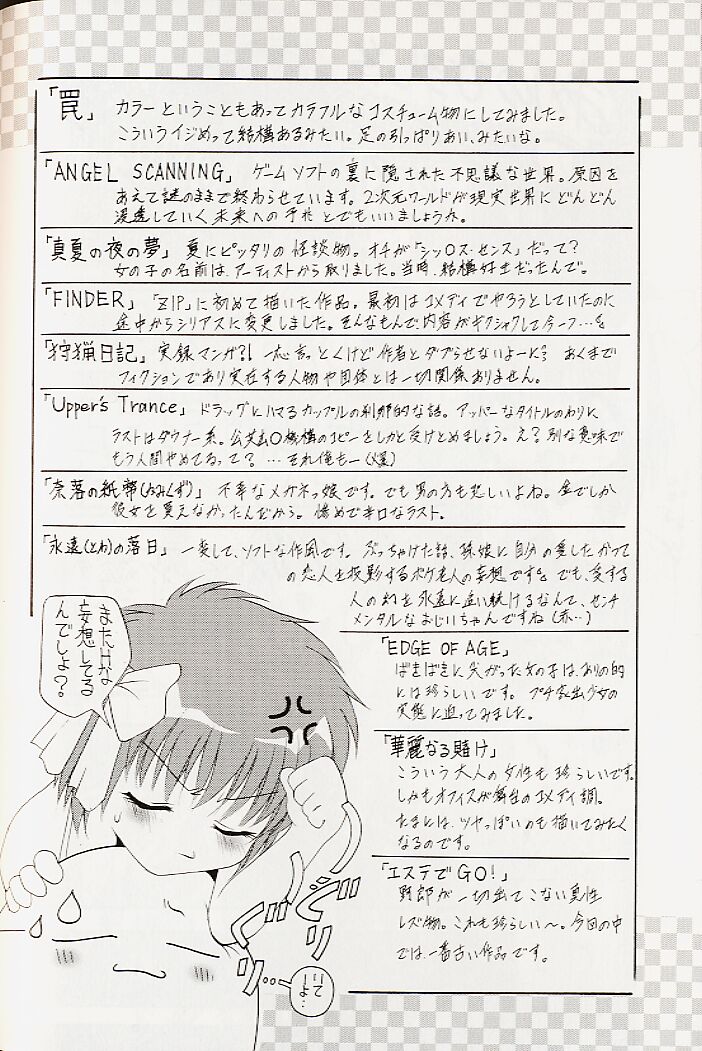 「罠」 カラーということもあってカラフルなコスチューム物にしてみました。
こういうイジめって結構あるみたい。足の引っぱりあい、みたいな。
「ANGEL SCANNING」 ゲームソフトの裏に隠された不思議な世界。原因を
あえて謎のままで終わらせています。2次元ワールドが現実世界にどんどん
浸透していく未来への予兆とでもいいましょうか。
「真夏の夜の夢」 夏にピッタリの怪談物。オチが「シッ○ス・センス」だって?
女の子の名前は、アーティストから取りました。当時、結構好きだったんで。
「FINDER」 「ZIP」に初めて描いた作品。最初はコメディでやろうとしていたのに
途中からシリアスに変更しました。そんなもんで内容がギクシャクして今一つ…
「狩猟日記」 実録マンガ?! 一応言っとくけど作者とダブらせないよーに あくまで
フィクションであり実在する人物や団体とは一切関係ありません。
「Upper's Trance」 ドラッグにハマるカップルの刹那的な話。アッパーなタイトルのわりに
ラストはダウナー系。公共広○機構のコピーをしかと受けとめましょう。え? 別な意味で
もう人間やめてるって? …それ俺もー(爆)
「奈落の紙幣(おみくず)」 不幸なメガネっ娘です。でも男の方も悲しいよね。金でしか
彼女を買えなかったんだから。惨めで辛口なラスト。
「永遠(とわ)の落日」 一変して、ソフトな作風です。ぶっちゃけた話、孫娘に自分の愛したかつて
の恋人を投影するボケ老人の妄想です。でも、愛する
人の幻を永遠に追い続けるなんて、センチ
メンタルなおじいちゃんですね(赤…)
「EDGE OF AGE」
ばきばきに尖がった女の子は、ありの的
には珍らしいです。プチ家出少女の
実態に迫ってみました。
「華麗なる賭け」
こういう大人の女性も珍らしいです。
しかもオフィスが舞台のコメディ調。
たまには、ツヤっぽいのも描いてみたく
なるのです。
「エステでGO!」
野郎が一切出てこない真性
レズ物。これも珍らしい〜。今回の中
では、一番古い作品です。
またHな
妄想してる
んでしょ?
グリグリ